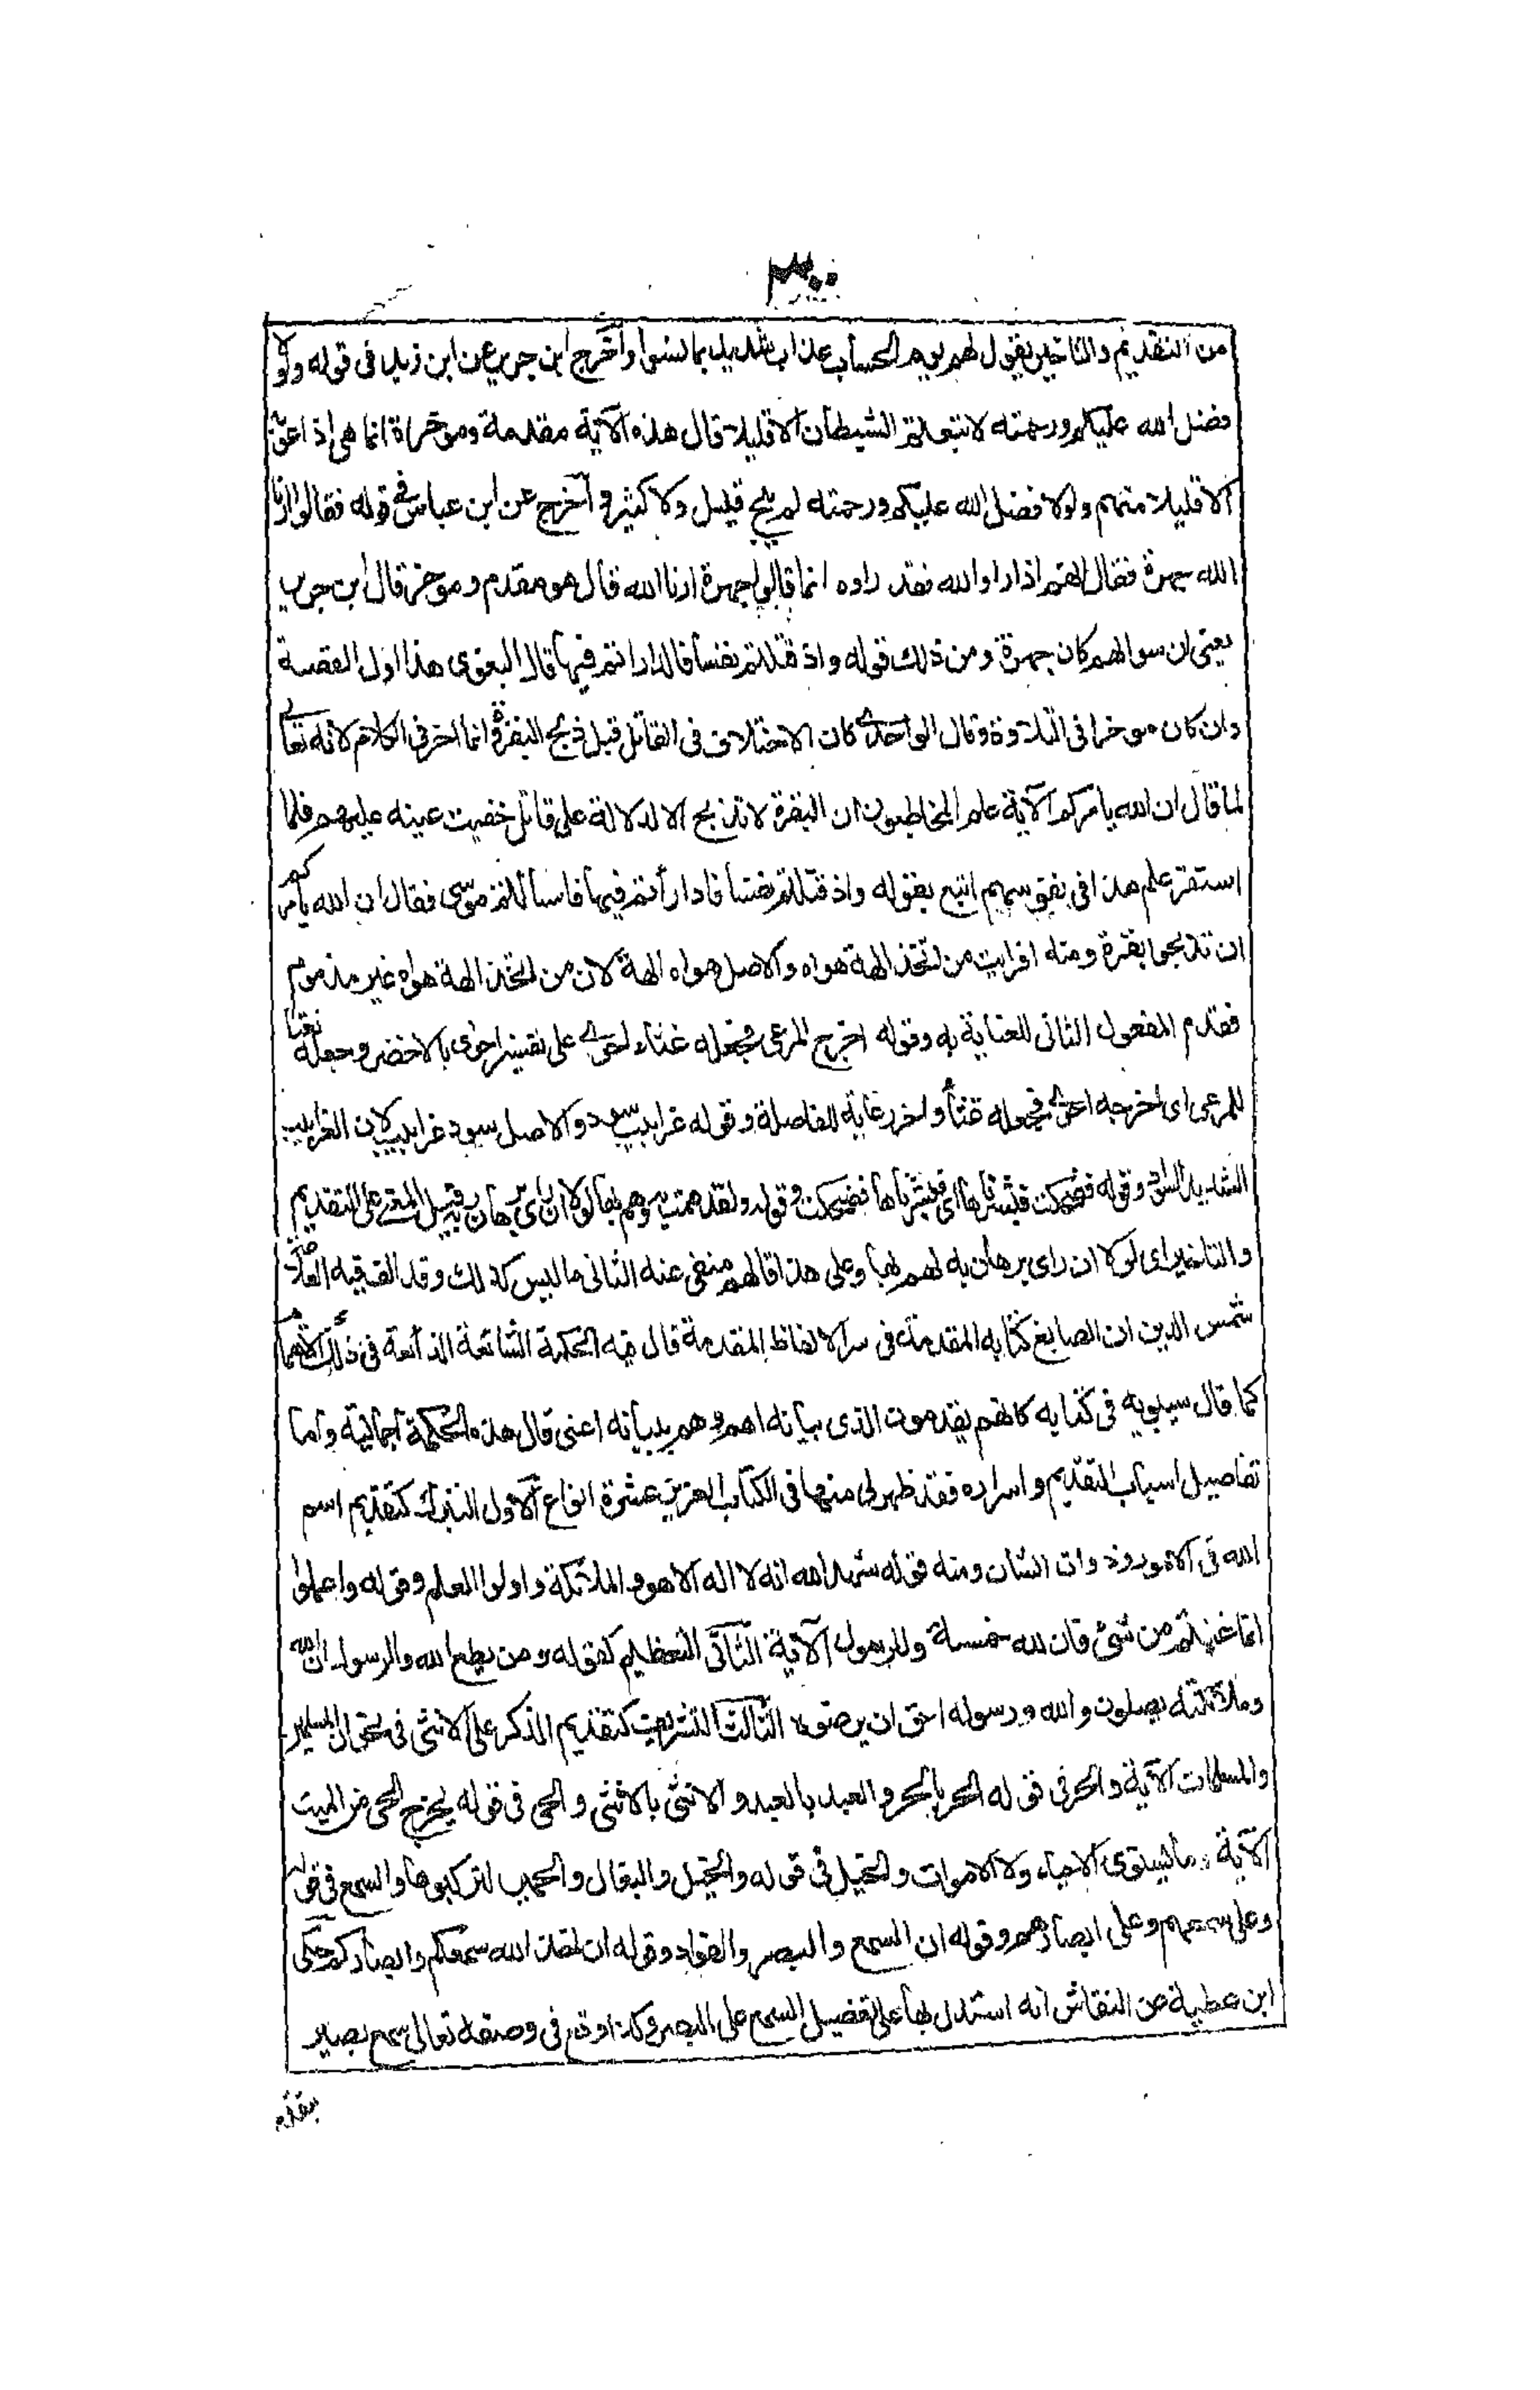 ٣٠٠
من التقديم والتاخير يقول لهم يوم الحساب عذاب شديد بما نسوا واخرج ابن جرير عن ابن زيد في قوله ولولا
فضل الله عليكم ورحمته لاتبعتم الشيطان الا قليلا قال هذه الآية مقدمة وموخراة انما هي اذاعوابه
الا قليلا منهم ولولا فضل الله عليكم ورحمته لم ينج قليل ولا كثير و اخرج عن ابن عباس في قوله فقالوا ارنا
الله جهرة فقال انهم اذا راوا الله فقد راوه انما قالوا جهرة ارنا الله قال هو مقدم وموخر قال ابن جرير
يعني ان سوالهم كان جهرة ومن ذلك قوله واذ قتلتم نفسا فاداراتم فيها قال البغوى هذا اول القصة
وان كان موخرا في التلاوة وقال الواحدى كان الاختلاف في القاتل قبل ذبح البقرة وانما اخر في الكلام لانه تعالى
لما قال ان الله يامركم الآية علم المخاطبون ان البقرة لا تذبح الا للدلالة على قاتل خفيت عينه عليهم فلما
استقر علم هذا في نفوسهم اتبع بقوله واذ قتلتم نفسا فاداراتم فيها فاسألتم موسى فقال ان الله يامركم
ان تذبحوا بقرة ومنه افرايت من اتخذ الهه هواه والاصل هواه الهه لان من اتخذ الهه هواه غير مذموم
فقدم المفعول الثانى للعناية به وقوله اخرج المرعى فجعله غثاء احوى على تفسير احوى بالاخضر وجعله نعتا
للمرعى اى اخرجه احوى فجعله غثاء واخر رعاية للفاصلة وقوله غرابيب سود والاصل سود غرابيب لان الغرابيب
الشديد السواد وقوله فضحكت فبشرناها اى فبشرناها فضحكت وقوله ولقد همت به وهم بها لولا ان راى برهان ربه قيل المعنى على التقديم
والتاخير اى لولا ان راى برهان ربه لهم بها وعلى هذا فالهم منفى عنه الثانى ما ليس كذلك وقد الف فيه العلامة
شمس الدين ابن الصايغ كتابه المقدمة في سر الالفاظ المقدمة قال فيه الحكمة الشائعة الذائعة في ذلك الاهتمام
كما قال سيبويه في كتابه كانهم يقدمون الذى بيانه اهم وهم ببيانه اعنى قال هذه الحكمة اجمالية واما
تفاصيل اسباب التقديم واسراره فقد ظهر لى منها في الكتاب العزيز عشرة انواع الاول التبرك كتقديم اسم
الله في الامور ذوات الشان ومنه قوله شهد الله انه لا اله الا هو والملائكة واولوا العلم وقوله واعلموا
انما غنمتم من شئ فان لله خمسه وللرسول الآية الثانى التعظيم كقوله ومن يطع الله والرسول ان الله
وملائكته يصلون والله ورسوله احق ان يرضوه الثالث التشريف كتقديم الذكر على الانثى في نحو ان المسلمين
والمسلمات الآية والحر في قوله الحر بالحر والعبد بالعبد والانثى بالانثى والحى في قوله يخرج الحى من الميت
الآية وما يستوى الاحياء ولا الاموات والخيل في قوله والخيل والبغال والحمير لتركبوها والسمع في قوله
وعلى سمعهم وعلى ابصارهم وقوله ان السمع والبصر والفواد وقوله ان اخذ الله سمعكم وابصاركم حكى
ابن عطية عن النقاش انه استدل بها على تفضيل السمع على البصر وكذا وقع في وصفه تعالى سميع بصير
بتقديم